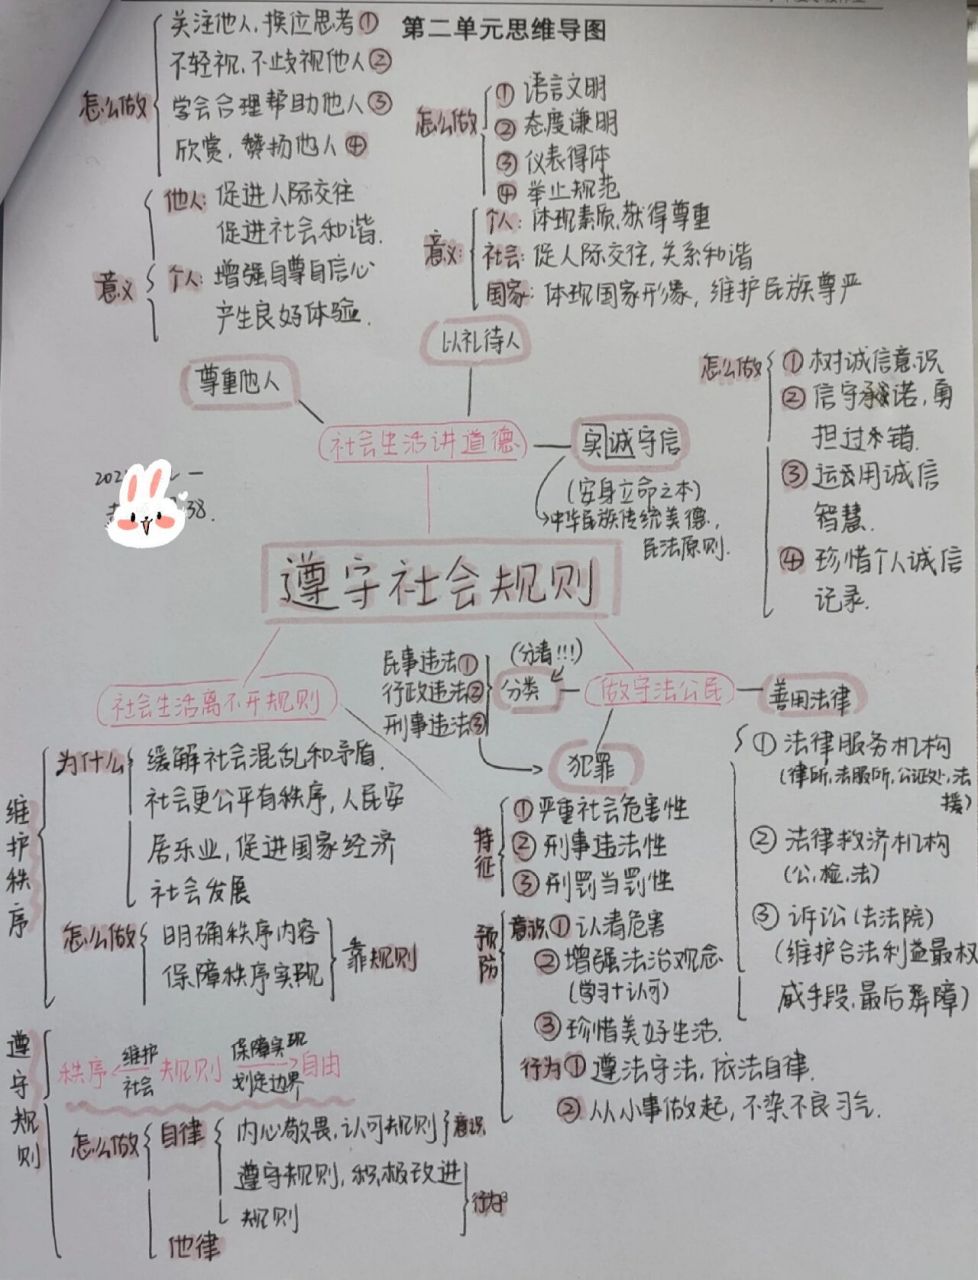 第二单元思维导图
怎么做
关注他人,换位思考①
不轻视,不歧视他人②
学会合理帮助他人③
欣赏,赞扬他人④
意义
他人:促进人际交往
促进社会和谐.
个人:增强自尊自信心
产生良好体验.
尊重他人
怎么做
①语言文明
②态度谦明
③仪表得体
④举止规范
意义:
个人:体现素质,获得尊重
社会:促人际交往,关系和谐
国家:体现国家形象,维护民族尊严
以礼待人
社会生活讲道德
实诚守信
(安身立命之本)
中华民族传统美德,
民法原则.
怎么做
①树诚信意识
②信守承诺,勇
担过错.
③运用诚信
智慧.
④珍惜个人诚信
记录.
202
38.
遵守社会规则
社会生活离不开规则
维护秩序
为什么
缓解社会混乱和矛盾.
社会更公平有秩序,人民安
居乐业,促进国家经济
社会发展
怎么做
明确秩序内容
保障秩序实现
靠规则
遵守规则
秩序 维护 社会 规则 保障实现 划定边界 自由
怎么做
自律
内心敬畏,认可规则 意识
遵守规则,积极改进
规则
行为
他律
做守法公民
分类
(分清!!!)
民事违法①
行政违法②
刑事违法③
犯罪
特征
①严重社会危害性
②刑事违法性
③刑罚当罚性
预防
意识①认清危害
②增强法治观念
(学习+认可)
③珍惜美好生活.
行为①遵法守法,依法自律.
②从小事做起,不染不良习气.
善用法律
①法律服务机构
(律所,法服所,公证处,法
援)
②法律救济机构
(公,检,法)
③诉讼(去法院)
(维护合法利益最权
威手段,最后屏障)